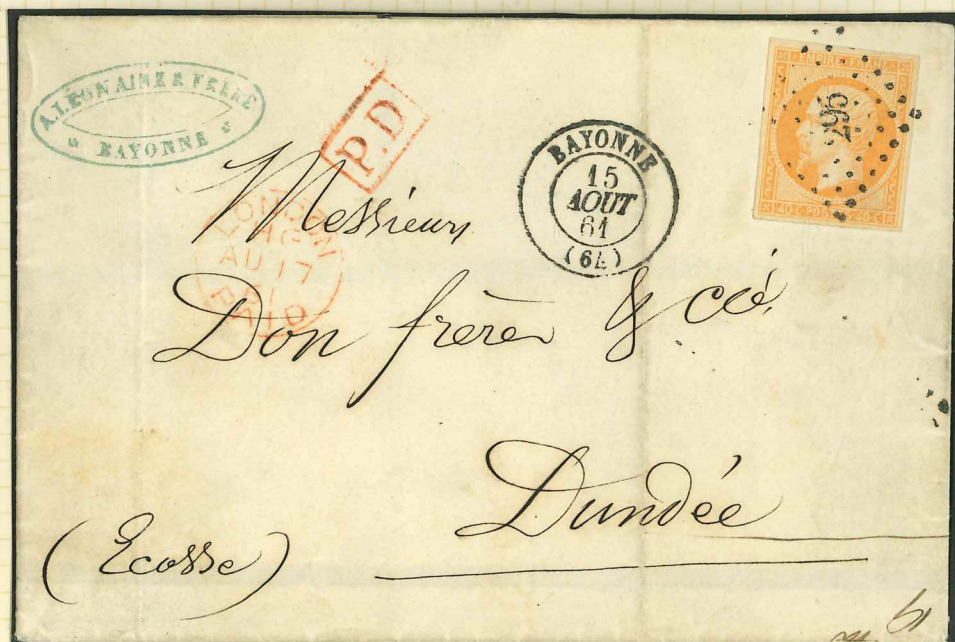 A. LÉON AINÉ & FRÈRE
BAYONNE
P.D
BAYONNE
15
AOUT
61
(64)
EMPIRE FRANC
295
40 C POSTES 40 C
LONDON
AU 17
PAID
Messieurs
Don frères & cie
Dundée
(Ecosse)
61